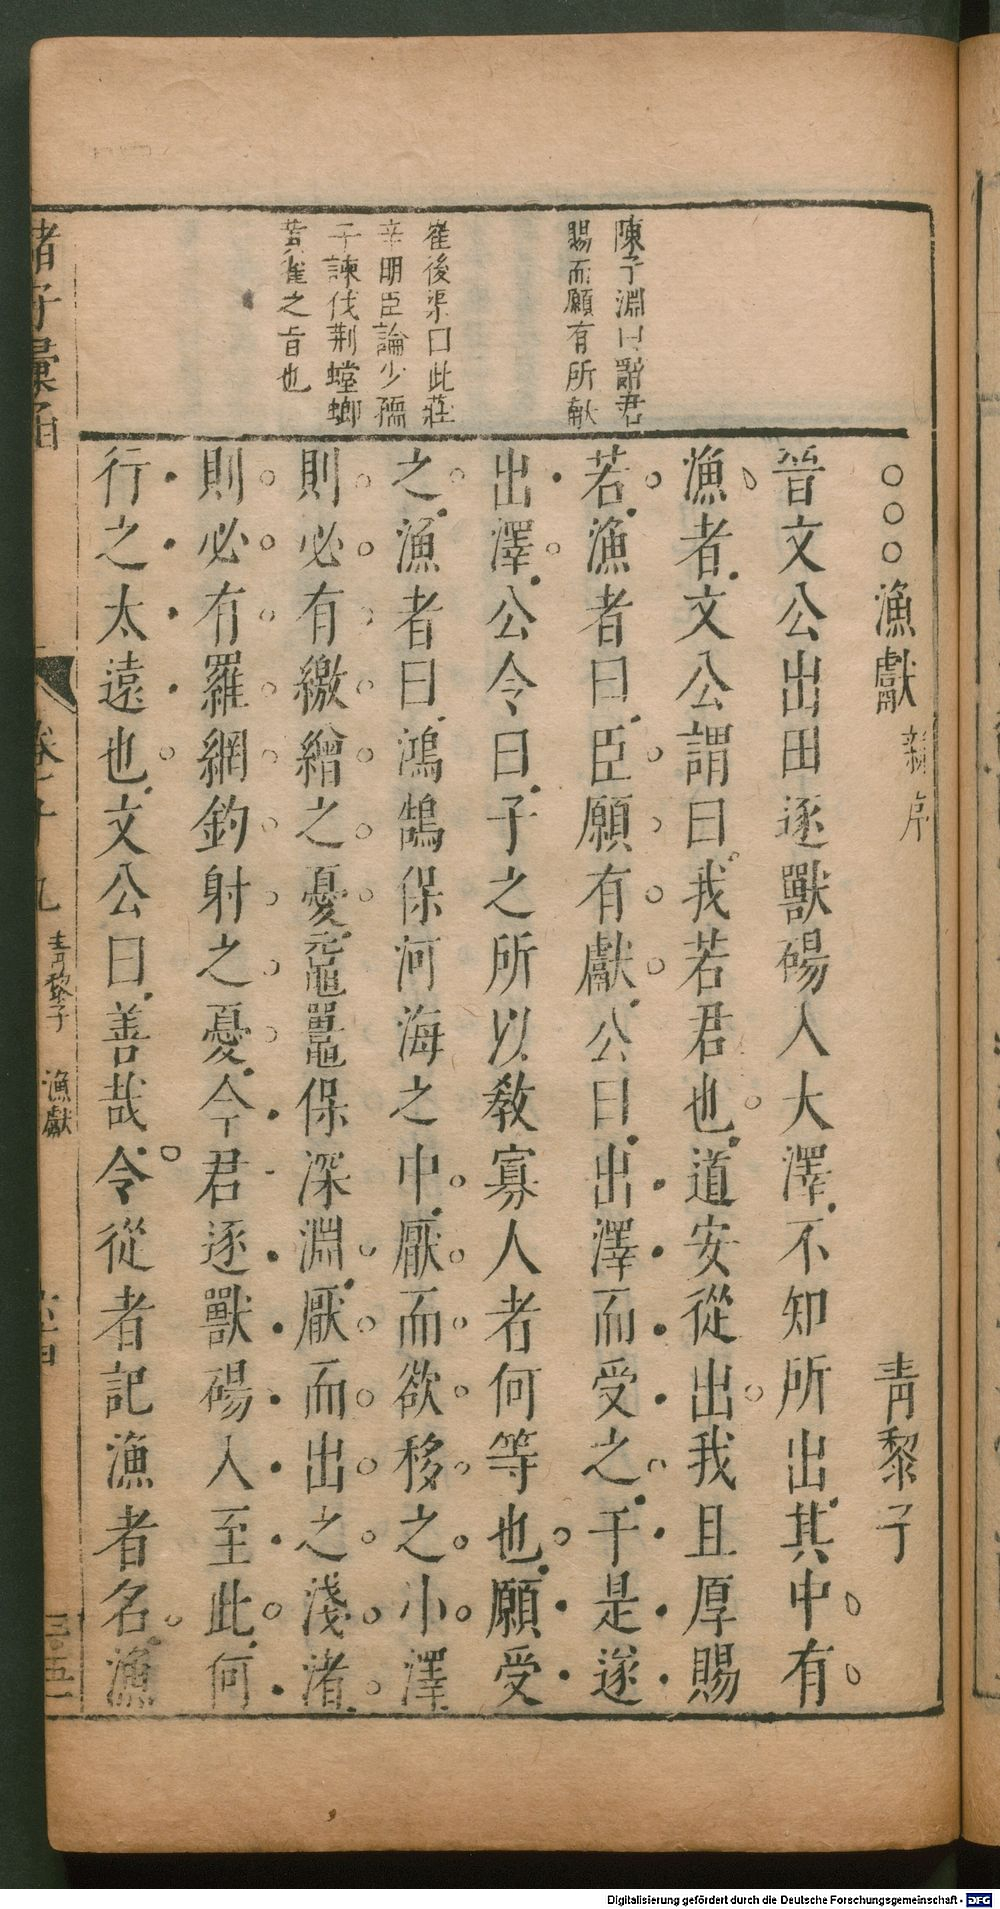 陳子淵曰辭君
賜而願有所献
崔後渠曰此莊
辛明臣論少孺
子諫伐荆螳螂
黄雀之旨也
○○○漁獻 新序 青黎子
晉文公出田逐獸碭入大澤不知所出其中有
漁者文公謂曰我若君也道安從出我且厚賜
若漁者曰臣願有獻公曰出澤而受之于是遂
出澤公令曰子之所以敎寡人者何等也願受
之漁者曰鴻鵠保河海之中厭而欲移之小澤
則必有繳繒之憂黿鼉保深淵厭而出之淺渚
則必有羅網釣射之憂今君逐獸碭入至此何
行之太遠也文公曰善哉令從者記漁者名漁
諸子彙函 卷十九 青黎子 漁獻
Digitalisierung gefördert durch die Deutsche Forschungsgemeinschaft - DFG